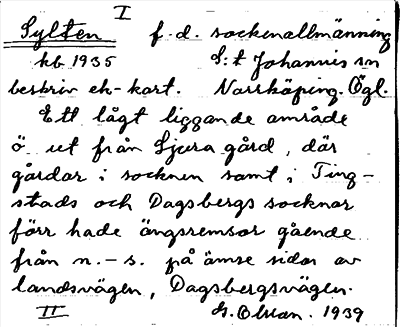 I
Sylten f.d. sockenallmänning
kb 1935 S:t Johannis sn
beskriv ek-kart. Norrköping. Ögl.
Ett lågt liggande område
ö. ut från Ljura gård, där
gårdar i socknen samt i Ting-
stads och Dagsbergs socknar
förr hade ängsremsor gående
från n. - s. på ömse sidor av
landsvägen, Dagsbergsvägen.
II G. Olson. 1939